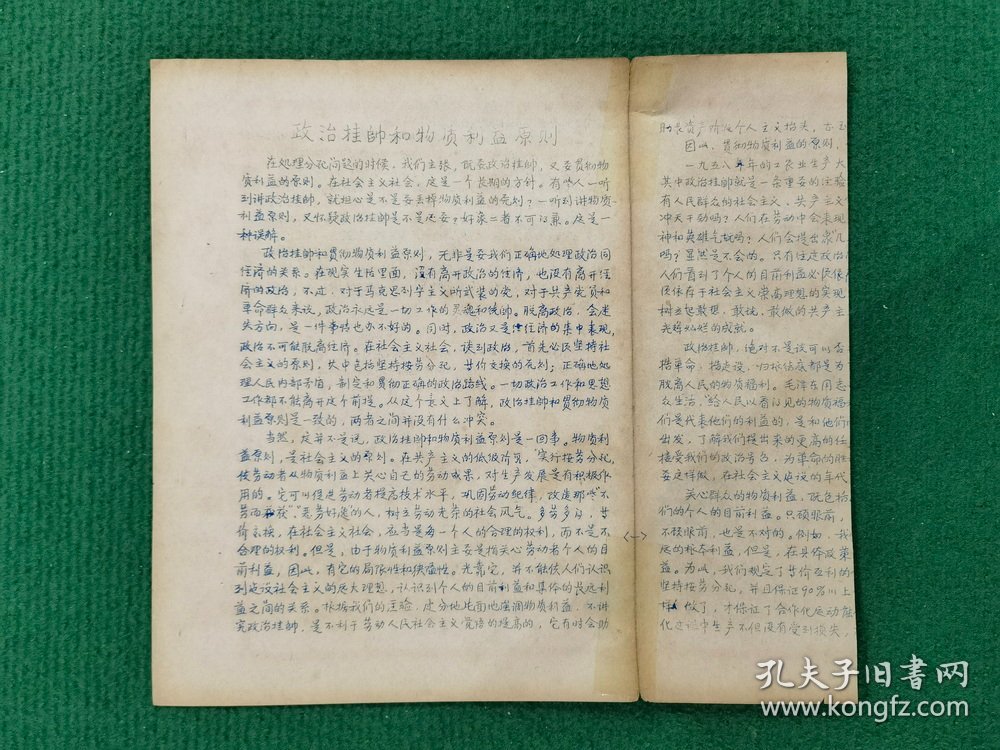 政治挂帅和物质利益原则
在处理分配问题的时候，我们主张，既要政治挂帅，又要贯彻物
质利益的原则。在社会主义社会，这是一个长期的方针。有些人一听
到讲政治挂帅，就担心是不是要丢掉物质利益的原则？一听到讲物质
利益原则，又怀疑政治挂帅是不是还要？好象二者不可得兼。这是一
种误解。
政治挂帅和贯彻物质利益原则，无非是要我们正确地处理政治同
经济的关系。在现实生活里面，没有离开政治的经济，也没有离开经
济的政治，不过，对于马克思列宁主义所武装的党，对于共产党员和
革命群众来说，政治永远是一切工作的灵魂和统帅。脱离政治，会迷
失方向，是一件事情也办不好的。同时，政治又是经济的集中表现，
政治不可能脱离经济。在社会主义社会，谈到政治，首先必民坚持社
会主义的原则，其中包括坚持按劳分配，廿价交换的原则；正确地处
理人民内部矛盾，制定和贯彻正确的政治路线。一切政治工作和思想
工作都不能离开这个前提。从这个意义上了解，政治挂帅和贯彻物质
利益原则是一致的，两者之间并没有什么冲突。
当然，这并不是说，政治挂帅和物质利益原则是一回事。物质利
益原则，是社会主义的原则。在共产主义的低级阶段，实行按劳分配，
使劳动者从物质利益上关心自己的劳动成果，对生产发展是有积极作
用的。它可以促进劳动者提高技术水平，巩固劳动纪律，改造那些“不
劳而获”、“恶劳好逸”的人，树立劳动光荣的社会风气。多劳多得，廿
价交换，在社会主义社会，应当是每一个人的合理的权利，而不是不
合理的权利。但是，由于物质利益原则主要是指关心劳动者个人的目
前利益，因此，有它的局限性和狭隘性。光靠它，并不能使人们认识
到建设社会主义的远大理想，认识到个人的目前利益和集体的长远利
益之间的关系。根据我们的经验，过分地片面地强调物质利益，不讲
究政治挂帅，是不利于劳动人民社会主义觉悟的提高的，它有时会助
<-->
助长资产阶级个人主义抬头，
因此，贯彻物质利益的原则，
一九五八年的工农业生产大
其中政治挂帅就是一条重要的经验
有人民群众的社会主义、共产主义
冲天干劲吗？人们在劳动中会表现
神和英雄气概吗？人们会提出象“几
吗？显然是不会的。只有经过政治
人们看到了个人的目前利益必民依
径依存于社会主义崇高理想的实现
树立起敢想、敢说、敢做的共产主
光辉灿烂的成就。
政治挂帅，绝对不是说可以否
搞革命，搞建设，归根结底都是为
脱离人民的物质福利。毛泽东同志
众生活，“给人民以看得见的物质福
们是代表他们的利益的，是和他们
出发，了解我们提出来的更高的任
接受我们的政治号召，为革命的胜
要这样做，在社会主义建设的年代
关心群众的物质利益，既包括
们的个人的目前利益。只顾眼前，
不顾眼前，也是不对的。例如，我
远的根本利益，但是，在具体政策
益。为此，我们规定了廿价互利的
坚持按劳分配，并且保证90%以上
样做了，才保证了合作化运动能
化过程中生产不但没有受到损失，
孔夫子旧书网
www.kongfz.com